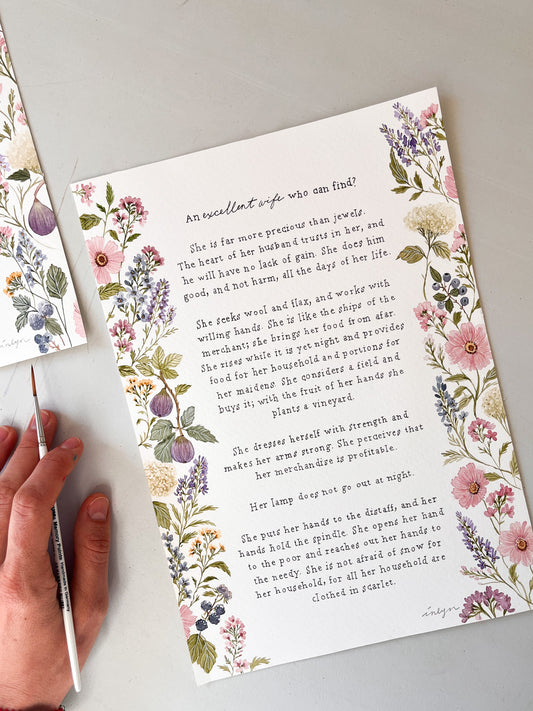 An excellent wife who can find?
She is far more precious than jewels.
The heart of her husband trusts in her, and
he will have no lack of gain. She does him
good, and not harm, all the days of her life.
She seeks wool and flax, and works with
willing hands. She is like the ships of the
merchant; she brings her food from afar.
She rises while it is yet night and provides
food for her household and portions for
her maidens. She considers a field and
buys it; with the fruit of her hands she
plants a vineyard.
She dresses herself with strength and
makes her arms strong. She perceives that
her merchandise is profitable.
Her lamp does not go out at night.
She puts her hands to the distaff, and her
hands hold the spindle. She opens her hand
to the poor and reaches out her hands to
the needy. She is not afraid of snow for
her household, for all her household are
clothed in scarlet.
inlyn
inlyn